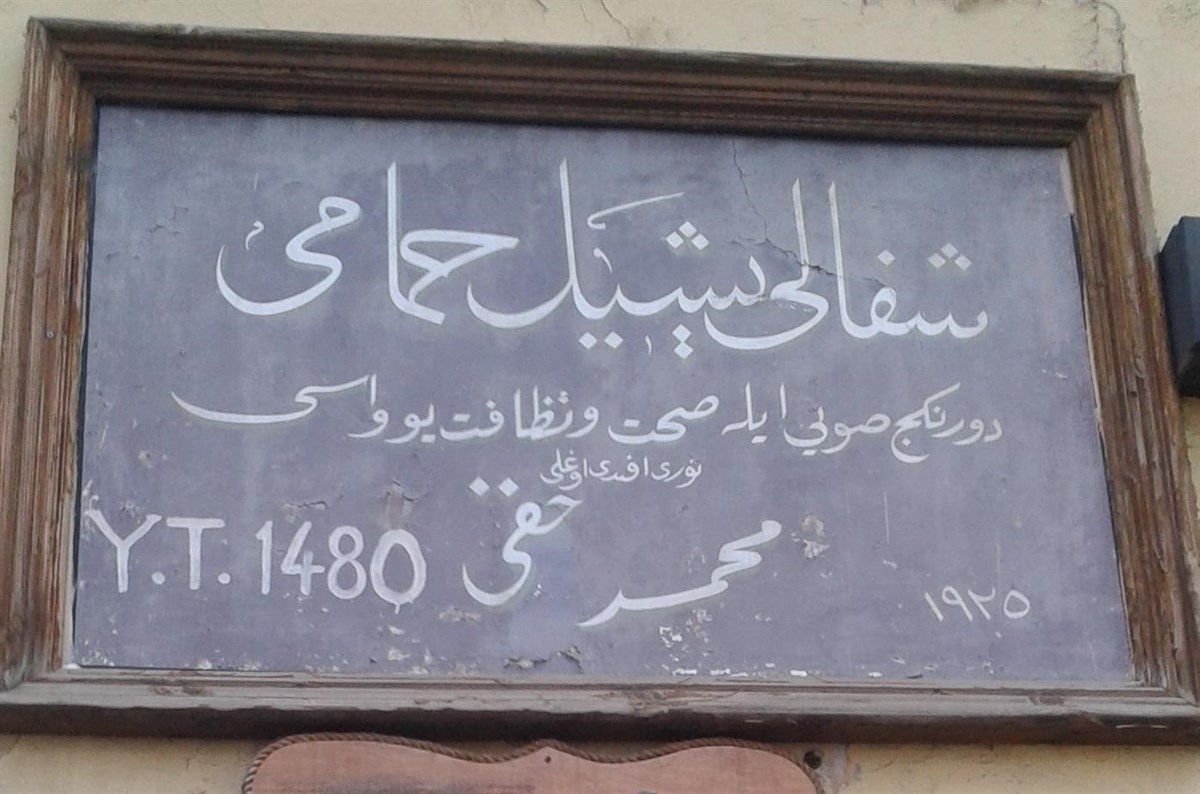 شفالی یشیل حمامی
دورنكج صویی ایله صحت و نظافت یوواسی
نوری افندی اوغلی
محمد حقی
Y.T. 1480
١٩٢٥